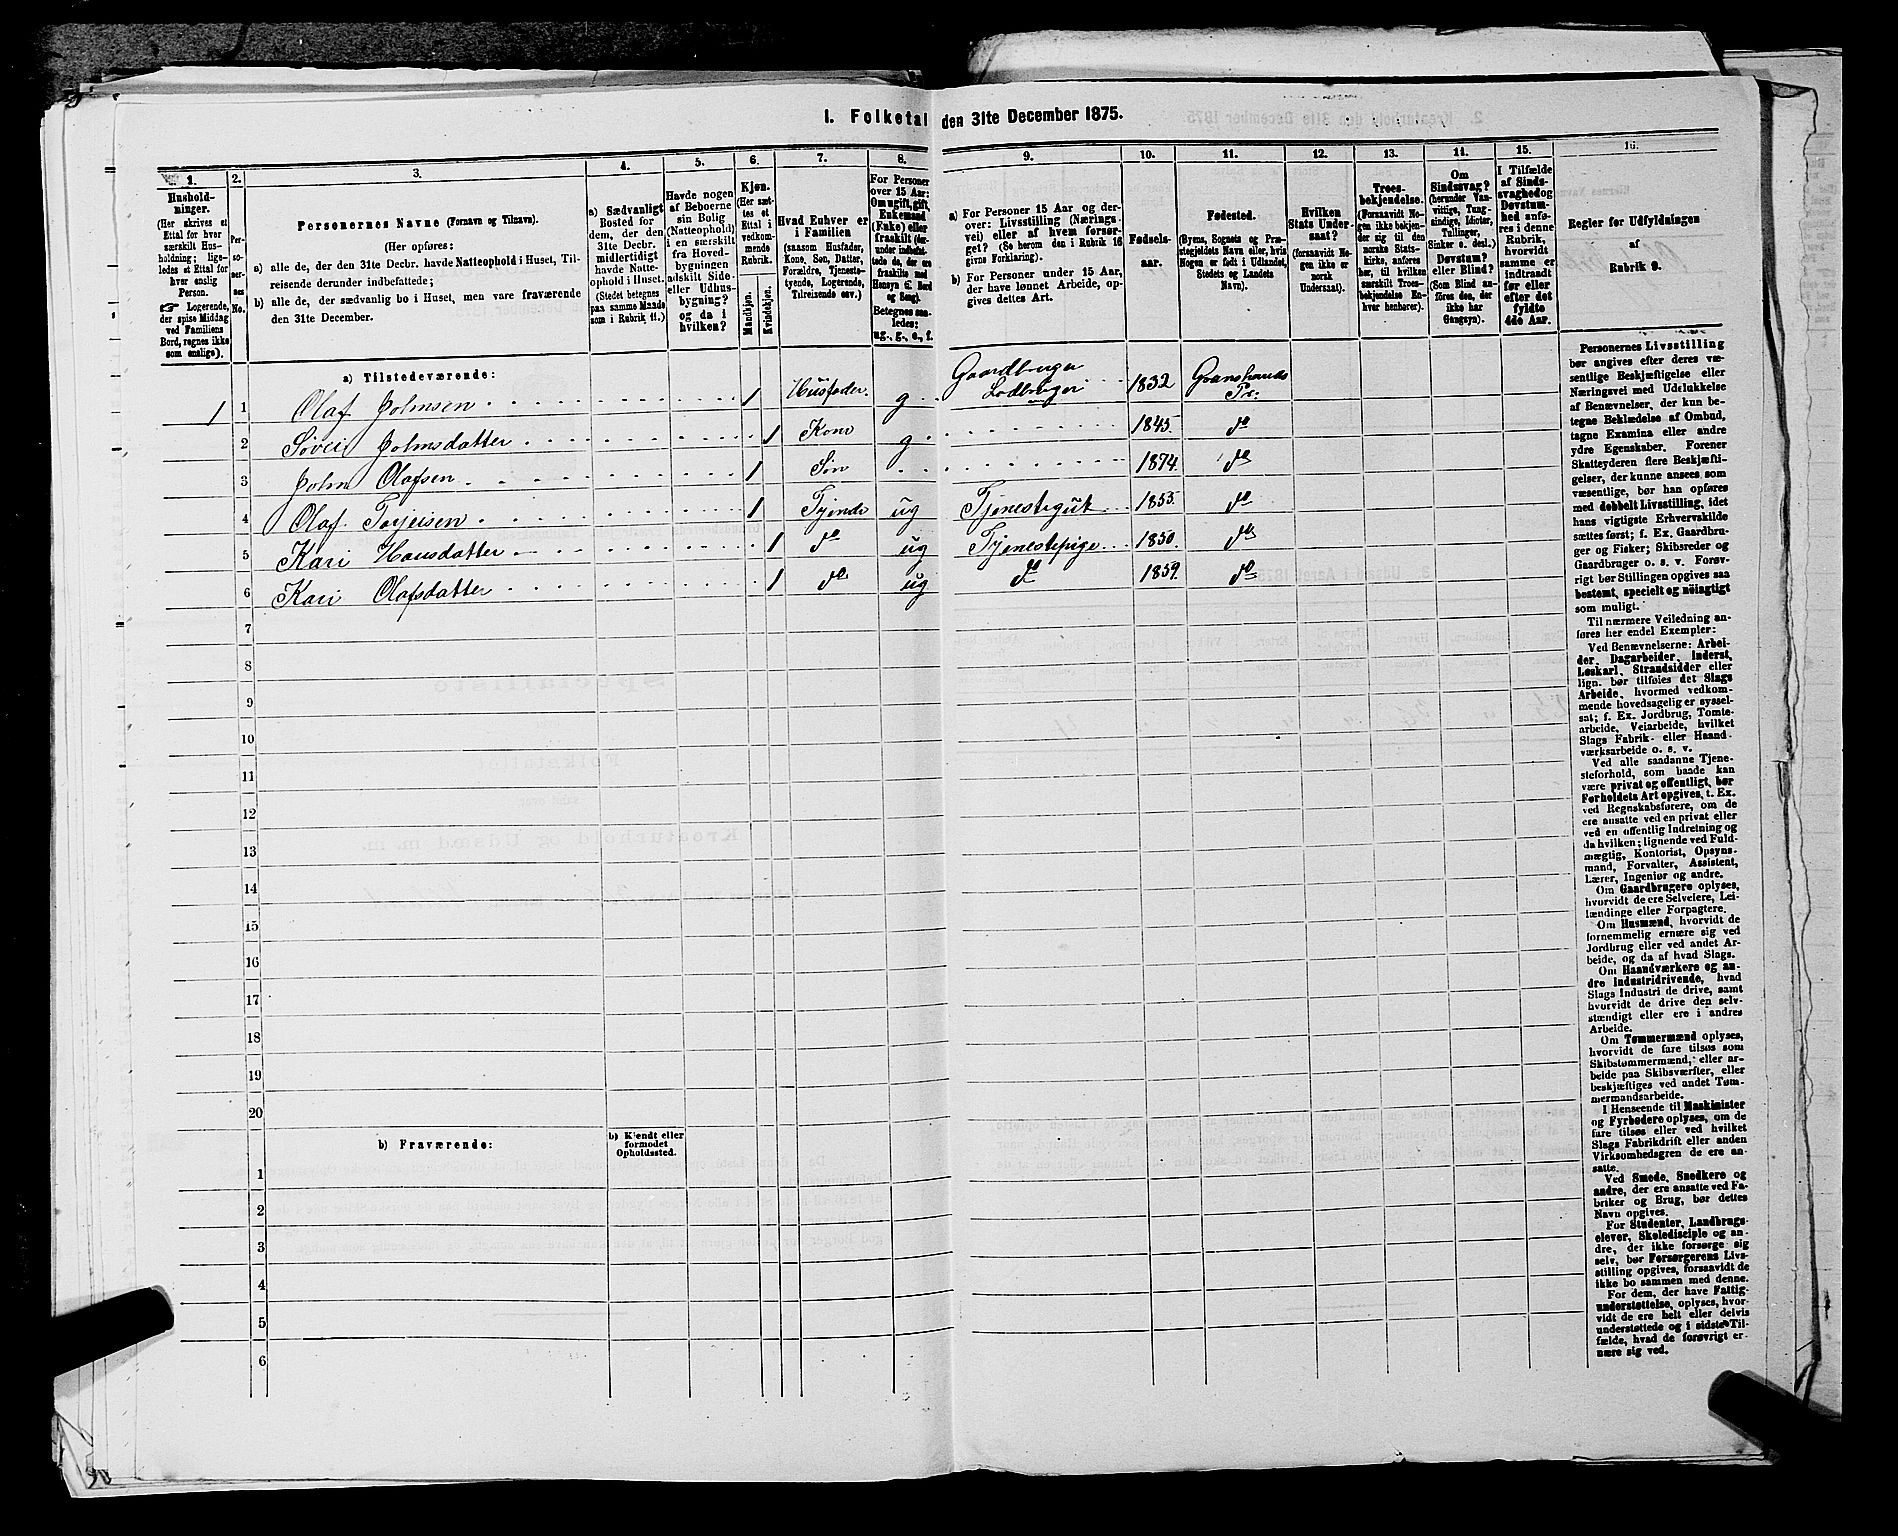 1. Folketal den 31te December 1875.
1. 2. 3. 4. 5. 6. 7. 8. 9. 10. 11. 12. 13. 14. 15. 16.
Hushold-
ninger.
(Her skrives et
Ettal for hver
særskilt Hus-
holdning; lige-
ledes et Ettal for
hver enslig
Person.
☞ Logerende,
der spise Middag
ved Familiens
Bord, regnes ikke
som enslige).
Per-
so-
ner-
nes
No.
Personernes Navne (Fornavn og Tilnavn).
(Her opføres:
a) alle de, der den 31te Decbr. havde Natteophold i Huset, Til-
reisende derunder indbefattede;
b) alle de, der sædvanlig bo i Huset, men vare fraværende
den 31te December.
a) Sædvanligt
Bosted for
dem, der den
31te Decbr.
midlertidigt
havde Natte-
ophold i Huset.
(Stedet betegnes
paa samme Maade
som i Rubrik 11.)
Havde nogen
af Beboerne
sin Bolig
(Natteophold)
i en særskilt
fra Hoved-
bygningen
adskilt Side-
eller Udhus-
bygning?
og da i
hvilken?
Kjøn.
(Her sæt-
tes et
Ettal i
vedkom-
mende
Rubrik.
Mandkjøn.
Kvindekjøn.
Hvad Enhver er
i Familien
(saasom Husfader,
Kone, Søn, Datter,
Forældre, Tjeneste-
tyende, Logerende,
Tilreisende osv.)
For Personer
over 15 Aar:
Om ugift, gift,
Enkemand
(Enke) eller
fraskilt (der-
under indbefat-
tede de, der ere
fraskilte med
Hensyn til Bord
og Seng).
Betegnes saa-
ledes:
ug., g., e., f.
a) For Personer 15 Aar og der-
over: Livsstilling (Nærings-
vei) eller af hvem forsør-
get? (Se herom den i Rubrik 16
givne Forklaring).
b) For Personer under 15 Aar,
der have lønnet Arbeide, op-
gives dettes Art.
Fødsels-
aar.
Fødested.
(Byens, Sognets og Præ-
stegjeldets Navn eller, hvis
Nogen er født i Udlandet,
Stedets og Landets
Navn).
Hvilken
Stats Under-
saat?
(forsaavidt No-
gen ikke er
norsk
Undersaat).
Troes-
bekjendelse.
(Forsaavidt No-
gen ikke bekjen-
der sig til den
norske Stats-
kirke, anføres
her, til hvilken
særskilt Troes-
bekjendelse En-
hver henhører).
Om
Sindssvag?
(herunder Van-
vittige, Tung-
sindige, Idioter,
Tullinger,
Sinker o. desl.)
Døvstum?
eller Blind?
(Som Blind an-
føres den, der
ikke har
Gangsyn).
I Tilfælde
af Sinds-
svaghed og
Døvstum-
hed anfø-
res i denne
Rubrik,
hvorvidt
samme er
indtraadt
før eller
efter det
fyldte
4de Aar.
Regler for Udfyldningen
af
Rubrik 9.
a) Tilstedeværende:
1 1 Olaf Johnsen 1 Husfader g Gaardbruger Lodbruger 1832 Gransherads Pr:
2 Søvei Johnsdatter 1 Kone g 1845. do
3 John Olafsen 1 Søn 1874. do
4 Olaf Torjeisen 1 Tjende ug Tjenestegut 1855. do
5 Kari Hansdatter 1 do ug Tjenestepige 1850. do
6 Kari Olafsdatter 1 do ug do 1859. do
7
8
9
10
11
12
13
14
15
16
17
18
19
20
b) Fraværende:
b) Kjendt eller
formodet
Opholdssted.
1
2
3
4
5
6
Personernes Livsstilling
bør angives efter deres væ-
sentlige Beskjæftigelse eller
Næringsvei med Udelukkelse
af Benævnelser, der kun be-
tegne Beklædelse af Ombud,
tagne Examina eller andre
ydre Egenskaber. Forener
Skatteyderen flere Beskjæfti-
gelser, der kunne ansees som
væsentlige, bør han opføres
med dobbelt Livsstilling, idet
hans vigtigste Erhvervskilde
sættes først; f. Ex. Gaardbru-
ger og Fisker; Skibsreder og
Gaardbruger o. s. v. Forøv-
rigt bør Stillingen opgives saa
bestemt, specielt og nöiagtigt
som muligt.
Til nærmere Veiledning an-
føres her endel Exempler:
Ved Benævnelserne: Arbei-
der, Dagarbeider, Inderst,
Løskarl, Strandsidder eller
lign. bør tilføies det Slags
Arbeide, hvormed vedkom-
mende hovedsagelig er syssel-
sat; f. Ex. Jordbrug, Tomte-
arbeide, Veiarbeide, hvilket
Slags Fabrik- eller Haand-
værksarbeide o. s. v.
Ved alle saadanne Tjene-
steforhold, som baade kan
være privat og offentligt, bør
Forholdets Art opgives, t. Ex.
ved Regnskabsførere, om de
ere ansatte ved en privat eller
ved en offentlig Indretning og
da hvilken; lignende ved Fuld-
mægtig, Kontorist, Opsyns-
mand, Forvalter, Assistent,
Lærer, Ingeniør og andre.
Om Gaardbrugere oplyses,
hvorvidt de ere Selveiere, Lei-
lændinge eller Forpagtere.
Om Husmænd, hvorvidt de
fornemmelig ernære sig ved
Jordbrug eller ved andet Ar-
beide, og da af hvad Slags.
Om Haandværkere og an-
dre Industridrivende, hvad
Slags Industri de drive, samt
hvorvidt de drive den selv-
stændigt eller ere i andres
Arbeide.
Om Tømmermænd oplyses,
hvorvidt de fare tilsøs som
Skibstømmermænd, eller ar-
beide paa Skibsværfter, eller
beskjæftiges ved andet Tøm-
mermandsarbeide.
I Henseende til Maskinister
og Fyrbødere oplyses, om de
fare tilsøs eller ved hvilket
Slags Fabrikdrift eller anden
Virksomhedsgren de ere an-
satte.
Ved Smede, Snedkere og
andre, der ere ansatte ved Fa-
briker og Brug, bør dettes
Navn opgives.
For Studenter, Landbrugs-
elever, Skoledisciple og an-
dre, der ikke forsørge sig
selv, bør Forsørgerens Livs-
stilling opgives, forsaavidt de
ikke bo sammen med denne.
For dem, der have Fattig-
understøttelse, oplyses, hvor-
vidt de ere helt eller delvis
understøttede og i sidste Til-
fælde, hvad de forøvrigt er-
nære sig ved.